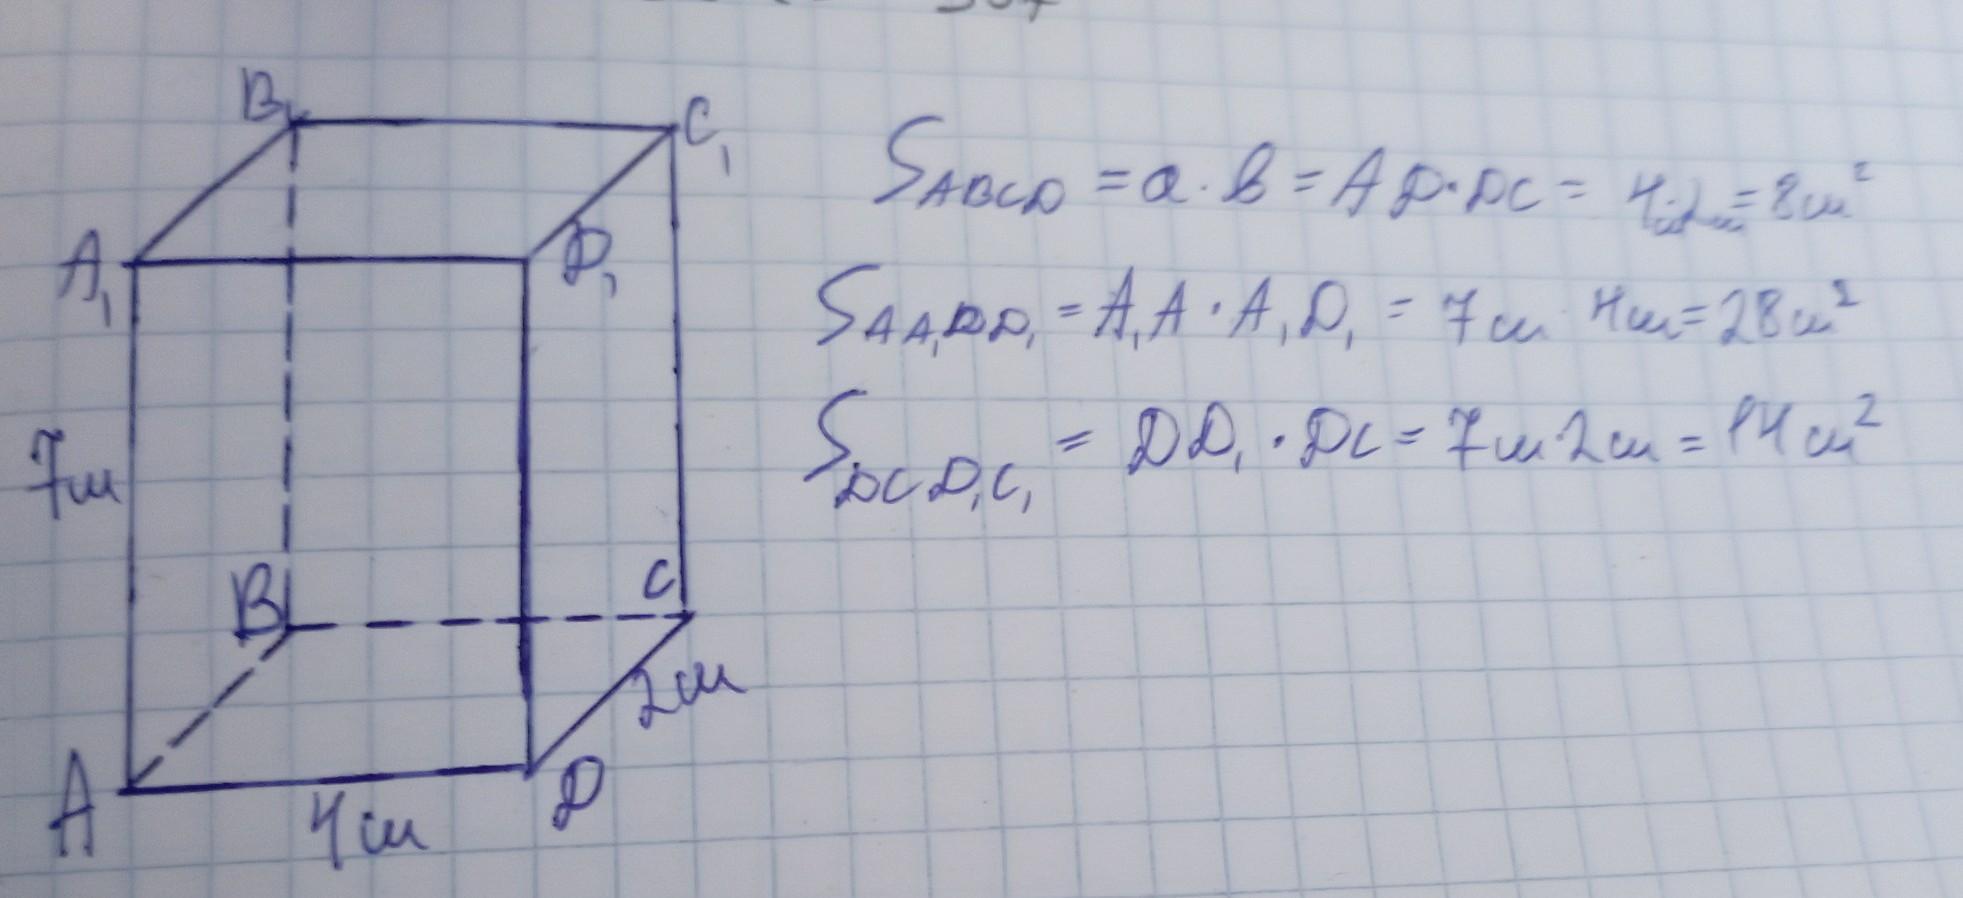 B₁
C₁
A₁
D₁
7см
B
C
2см
A
4см
D
S ABCD = a · b = AD · DC = 4см·2см = 8см²
S AA₁DD₁ = A₁A · A₁D₁ = 7см 4см = 28см²
S DCD₁C₁ = DD₁ · DC = 7см·2см = 14см²